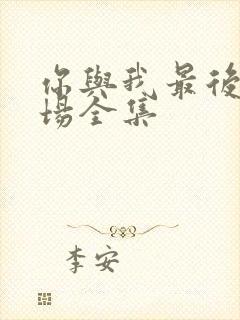 你與我最後
場全集
李安